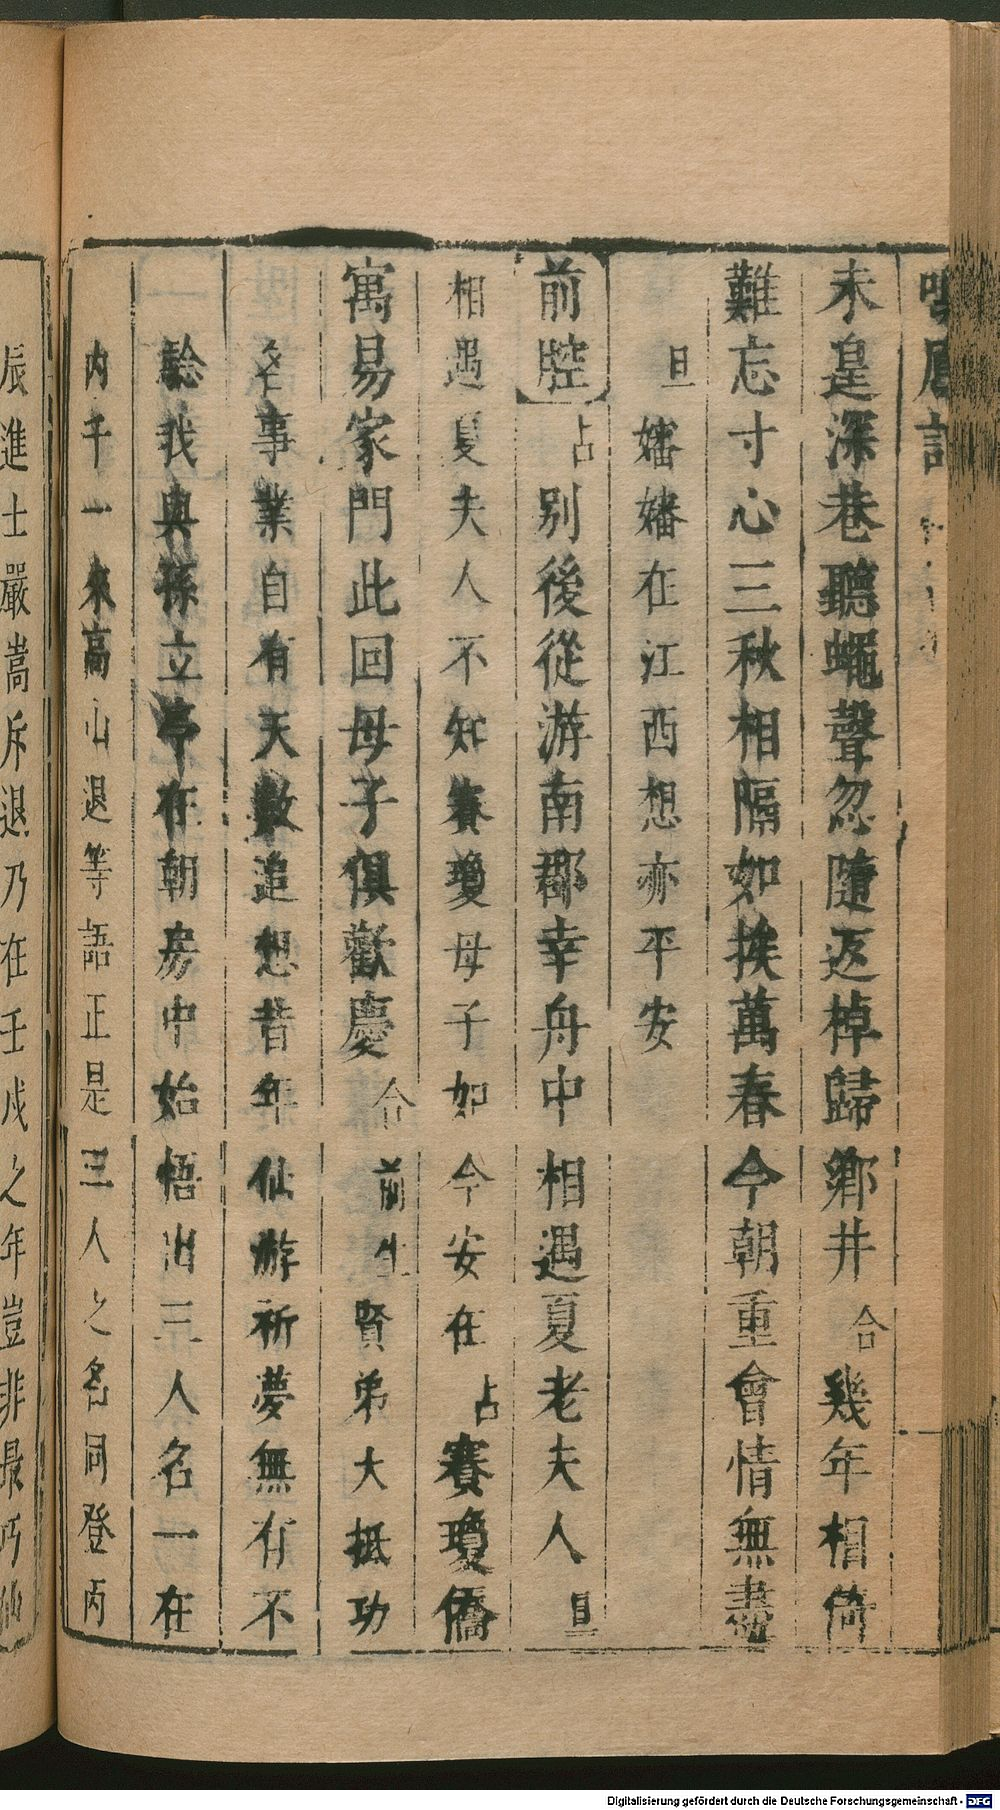 鳴鳳記
未遑深巷聽蠅聲忽隨返棹歸鄉井合幾年相倚
難忘寸心三秋相隔如挨萬春今朝重會情無盡
旦嬸嬸在江西想亦平安
前腔占別後從游南郡幸舟中相遇夏老夫人旦
相遇夏夫人不知賽瓊母子如今安在占賽瓊僑
寓易家門此回母子俱歡慶合前生賢弟大抵功
名事業自有天數追想昔年仙游祈夢無有不
騐我與孫立亭在朝房中始悟出三人名一在
內千一來高山退等語正是三人之名同登丙
辰進士嚴嵩斥退乃在壬戌之年豈非最巧仙
Digitalisierung gefördert durch die Deutsche Forschungsgemeinschaft - DFG